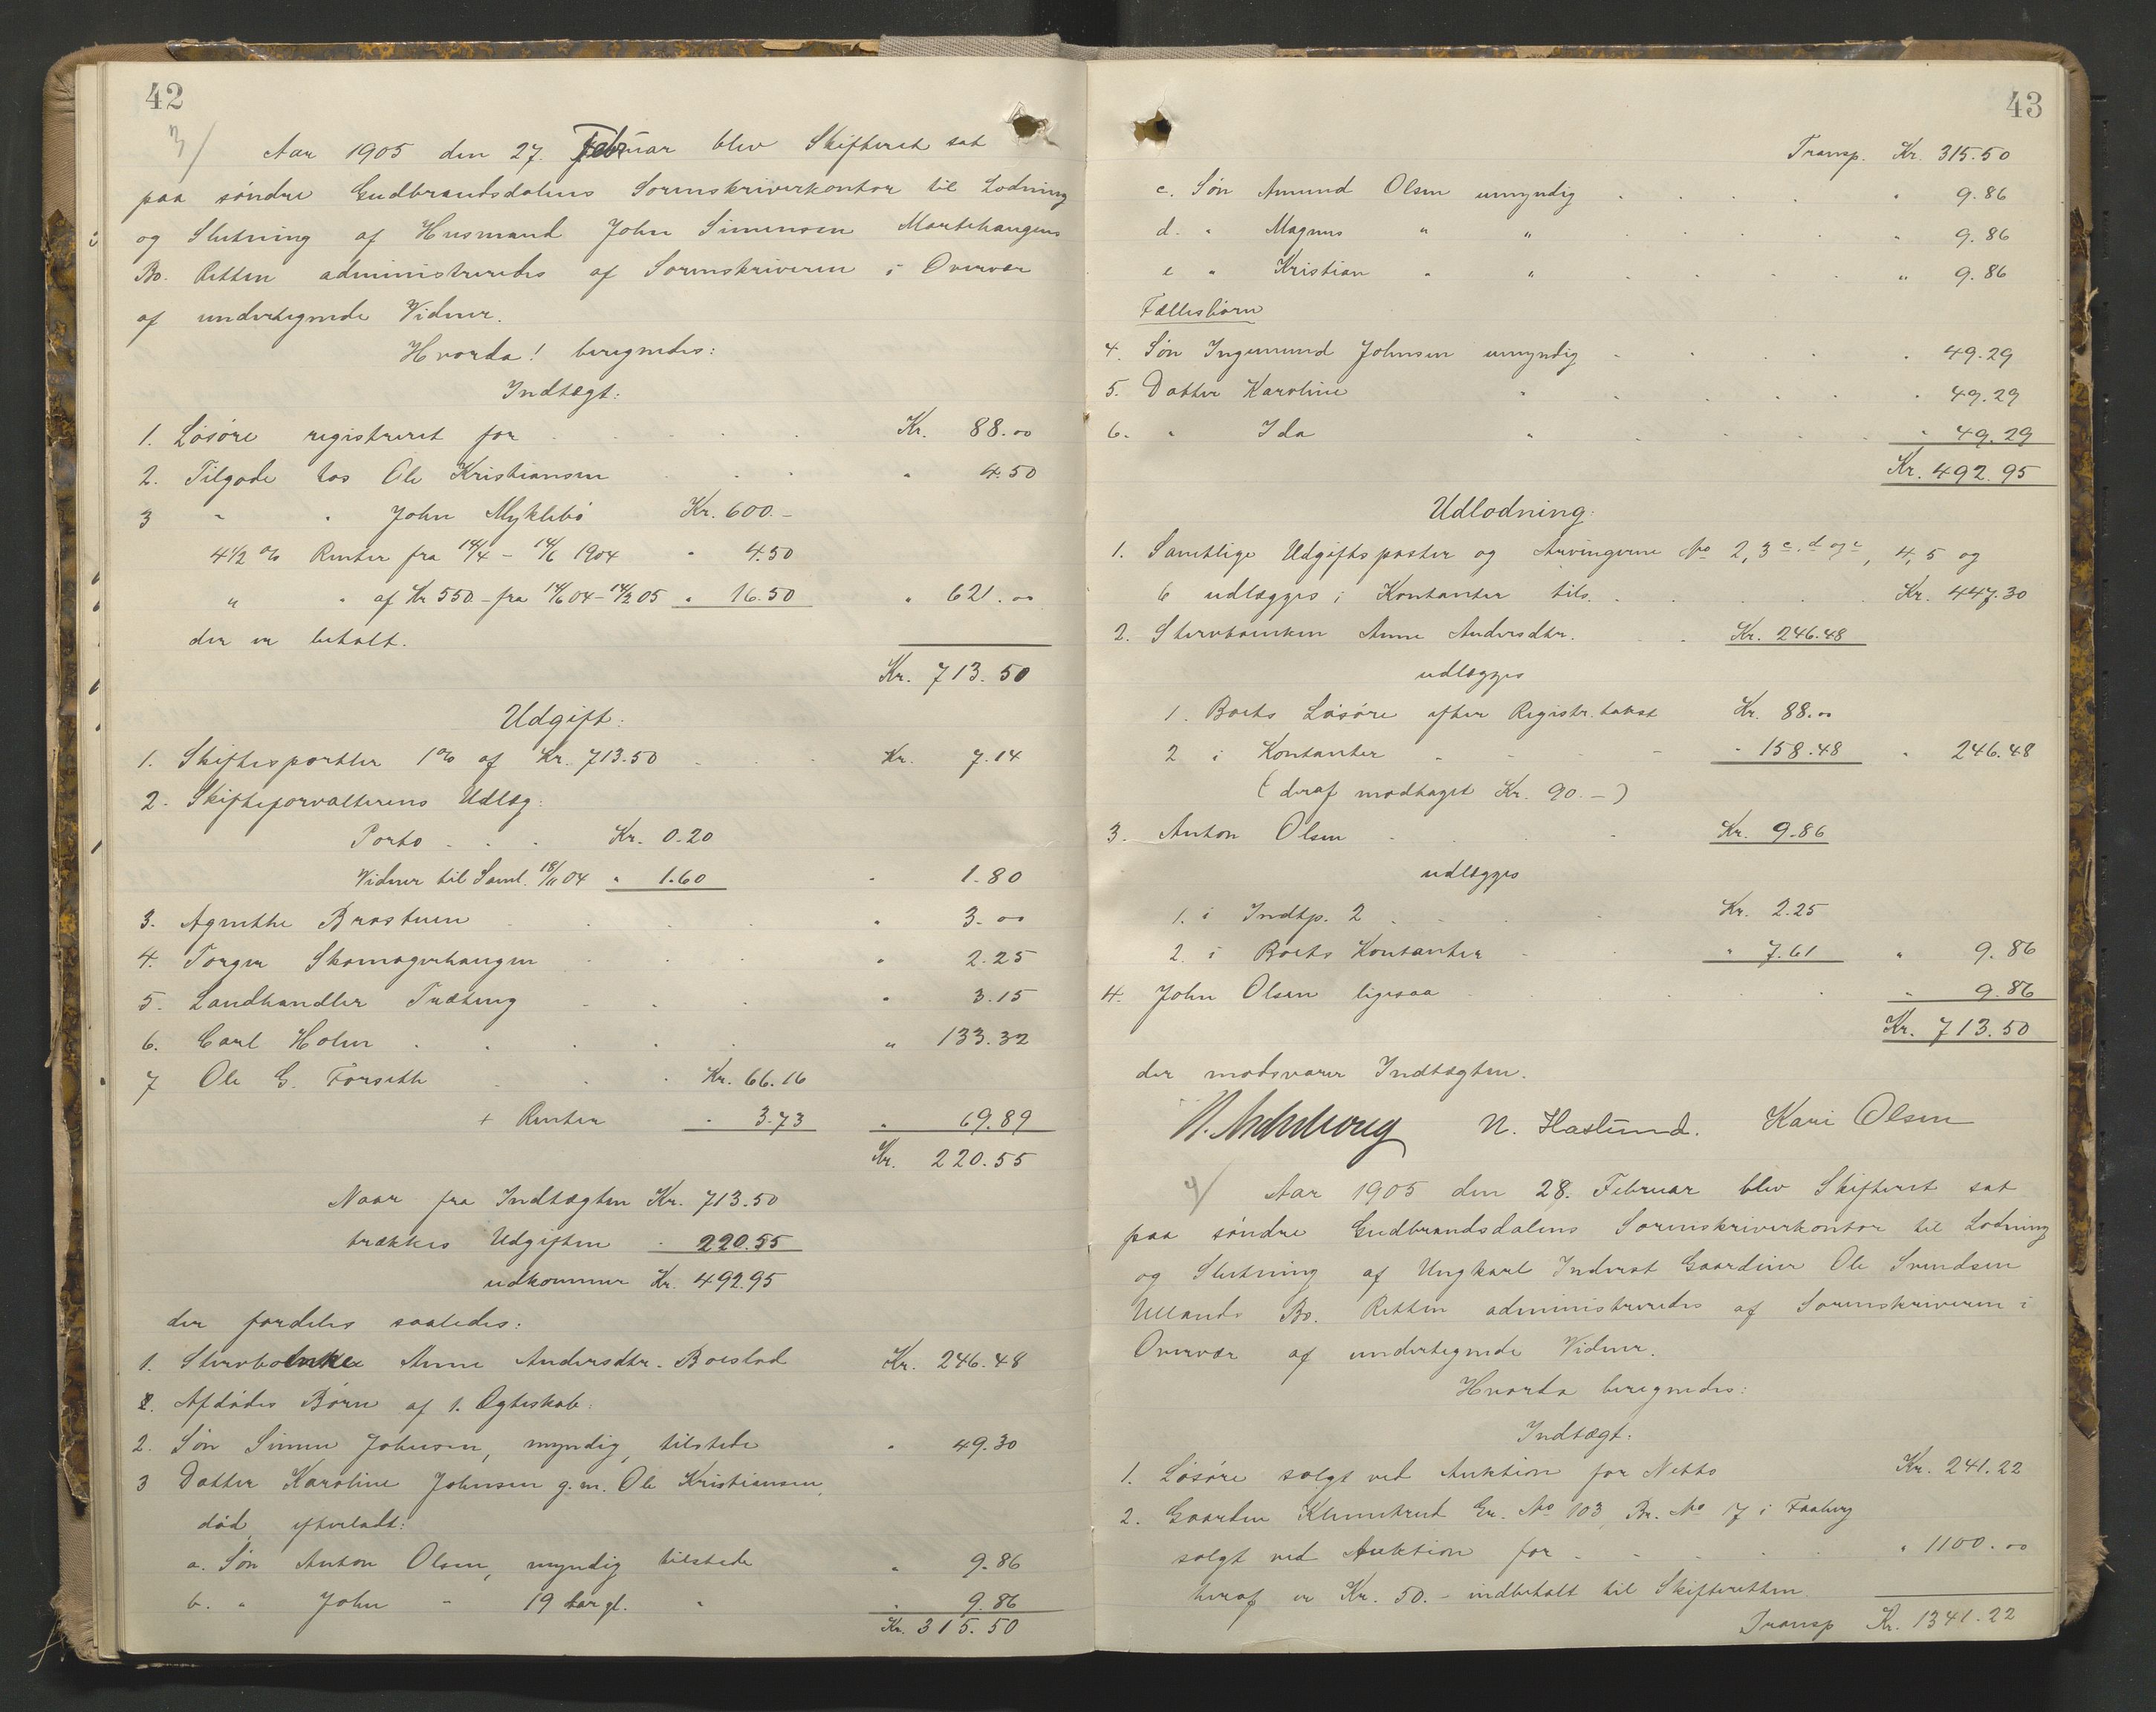 42
3/ Aar 1905 den 27. Februar blev Skifteret sat
paa søndre Gudbrandsdalens Sorenskriverkontor til Lodning
og Slutning af Husmand John Simensen Martehaugens
Bo. Retten administreredes af Sorenskriveren i Overvær
af undertegnede Vidner.
Hvorda! beregnedes:
Indtægt:
1. Løsøre registreret for Kr. 88.00
2. Tilgode hos Ole Kristiansen " 4.50
3 " " John Myklebø Kr. 600.-
4 1/2 % Renter fra 14/4 - 14/6 1904 " 4.50
" " af Kr 550 - fra 14/6 04 - 14/2 05 " 16.50 " 621.00
der er betalt.
Kr. 713.50
Udgift:
1. Skiftesportler 1% af Kr. 713.50 Kr. 7.14
2. Skifteforvalterens Udlæg:
Porto Kr. 0.20
Vidner til Saml. 18/11 04 " 1.60 " 1.80
3. Agnethe Brostuen " 3.00
4. Torger Skomagerhaugen " 2.25
5. Landhandler Træteng " 3.15
6. Carl Holm " 133.32
7 Ole G. Forseth Kr. 66.16
+ Renter " 3.73 " 69.89
Kr. 220.55
Naar fra Indtægten Kr. 713.50
trækkes Udgiften " 220.55
udkommer Kr. 492.95
der fordeles saaledes:
1. Stervboenke Anne Andersdtr. Boeslod Kr. 246.48
2. Afdødes Børn af 1. Ægteskab:
2. Søn Simen Johnsen, myndig, tilstede " 49.30
3 Datter Karoline Johnsen g.m. Ole Kristiansen,
død, efterladt:
a. Søn Anton Olsen, myndig tilstede " 9.86
b. " John " 19 Aar gl. " " 9.86
Kr. 315.50
43
Transp. Kr. 315.50
c. Søn Amund Olsen umyndig " 9.86
d. " Magnus " " " 9.86
e " Kristian " " " 9.86
Fællesbørn
4. Søn Ingemund Johnsen umyndig " 49.29
5. Datter Karoline " " 49.29
6. " Ida " " 49.29
Kr. 492.95
Udlodning:
1. Samtlige Udgiftsposter og Arvingerne No 2, 3 c, d og e, 4, 5 og
6 udlægges i Kontanter tils. Kr. 447.30
2. Stervboenken Anne Andersdtr. Kr. 246.48
udlægges
1. Boets Løsøre efter Registr. takst Kr. 88.00
2 i Kontanter " 158.48 " 246.48
(deraf modtaget Kr. 90.-)
3. Anton Olsen Kr. 9.86
udlægges
1. i Indtp. 2 Kr. 2.25
2. i Boets Kontanter " 7.61 " 9.86
4. John Olsen ligesaa " 9.86
Kr. 713.50
der modsvarer Indtægten.
N. Haslund. Kari Olsen
4/ Aar 1905 den 28. Februar blev Skifteret sat
paa søndre Gudbrandsdalens Sorenskriverkontor til Lodning
og Slutning af Ungkarl Inderst Gaardeier Ole Svendsen
Ullands Bo. Retten administreredes af Sorenskriveren i
Overvær af undertegnede Vidner.
Hvorda beregnedes:
Indtægt:
1. Løsøre solgt ved Auktion for Netto Kr. 241.22
2. Gaarden Klemetrud Gr. No 103, Br. No 17 i Faaberg
solgt ved Auktion for " 1100.00
heraf er Kr. 50.- indbetalt til Skifteretten
Transp Kr. 1341.22